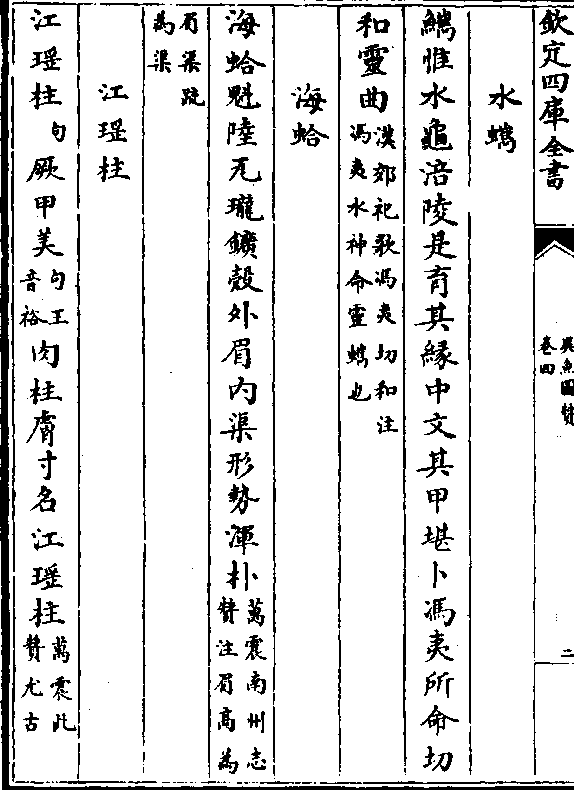 欽定四庫全書
異魚圖贊
卷四
二
水蠵
蠵惟水龜涪陵是育其緣中文其甲堪卜馮夷所命切
和靈曲漢郊祀歌馮夷切和注
馮夷水神命靈蠵也
海蛤
海蛤魁陸旡瓏鑛殼外眉内渠形勢渾朴萬震南州志
贊注眉高為
眉渠疏
為渠
江瑶柱
江瑶柱句厥甲美句王
音裕肉柱膚寸名江瑶柱萬震此
贊尤古